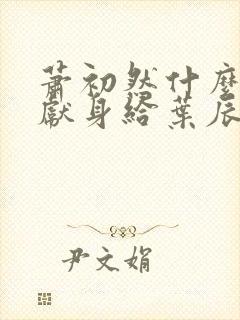 蕭初然什麼
獻身給葉辰
尹文娟